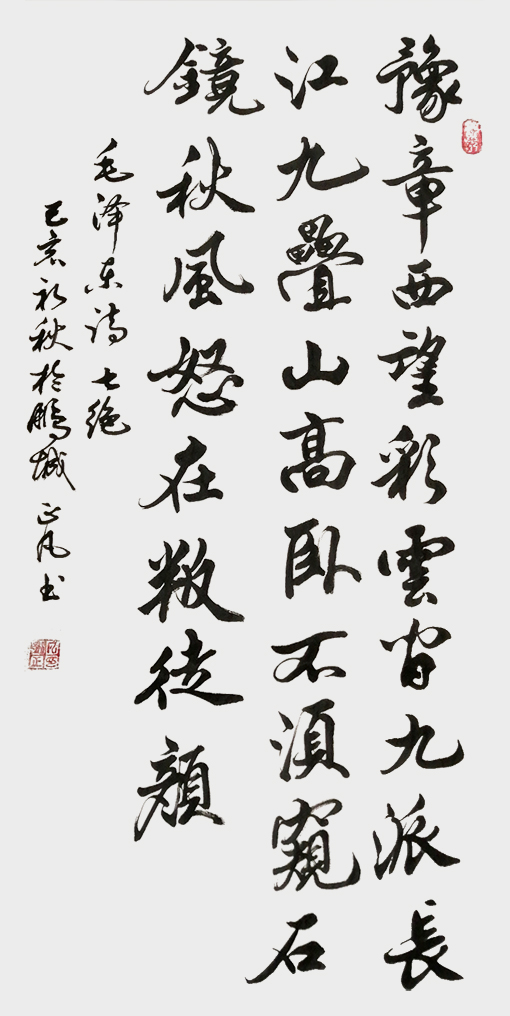 豫章西望彩雲間九派長
江九疊山高卧不須窺石
鏡秋風怒在叛徒顏
毛泽东诗 七绝
己亥初秋於鵬城 正 书